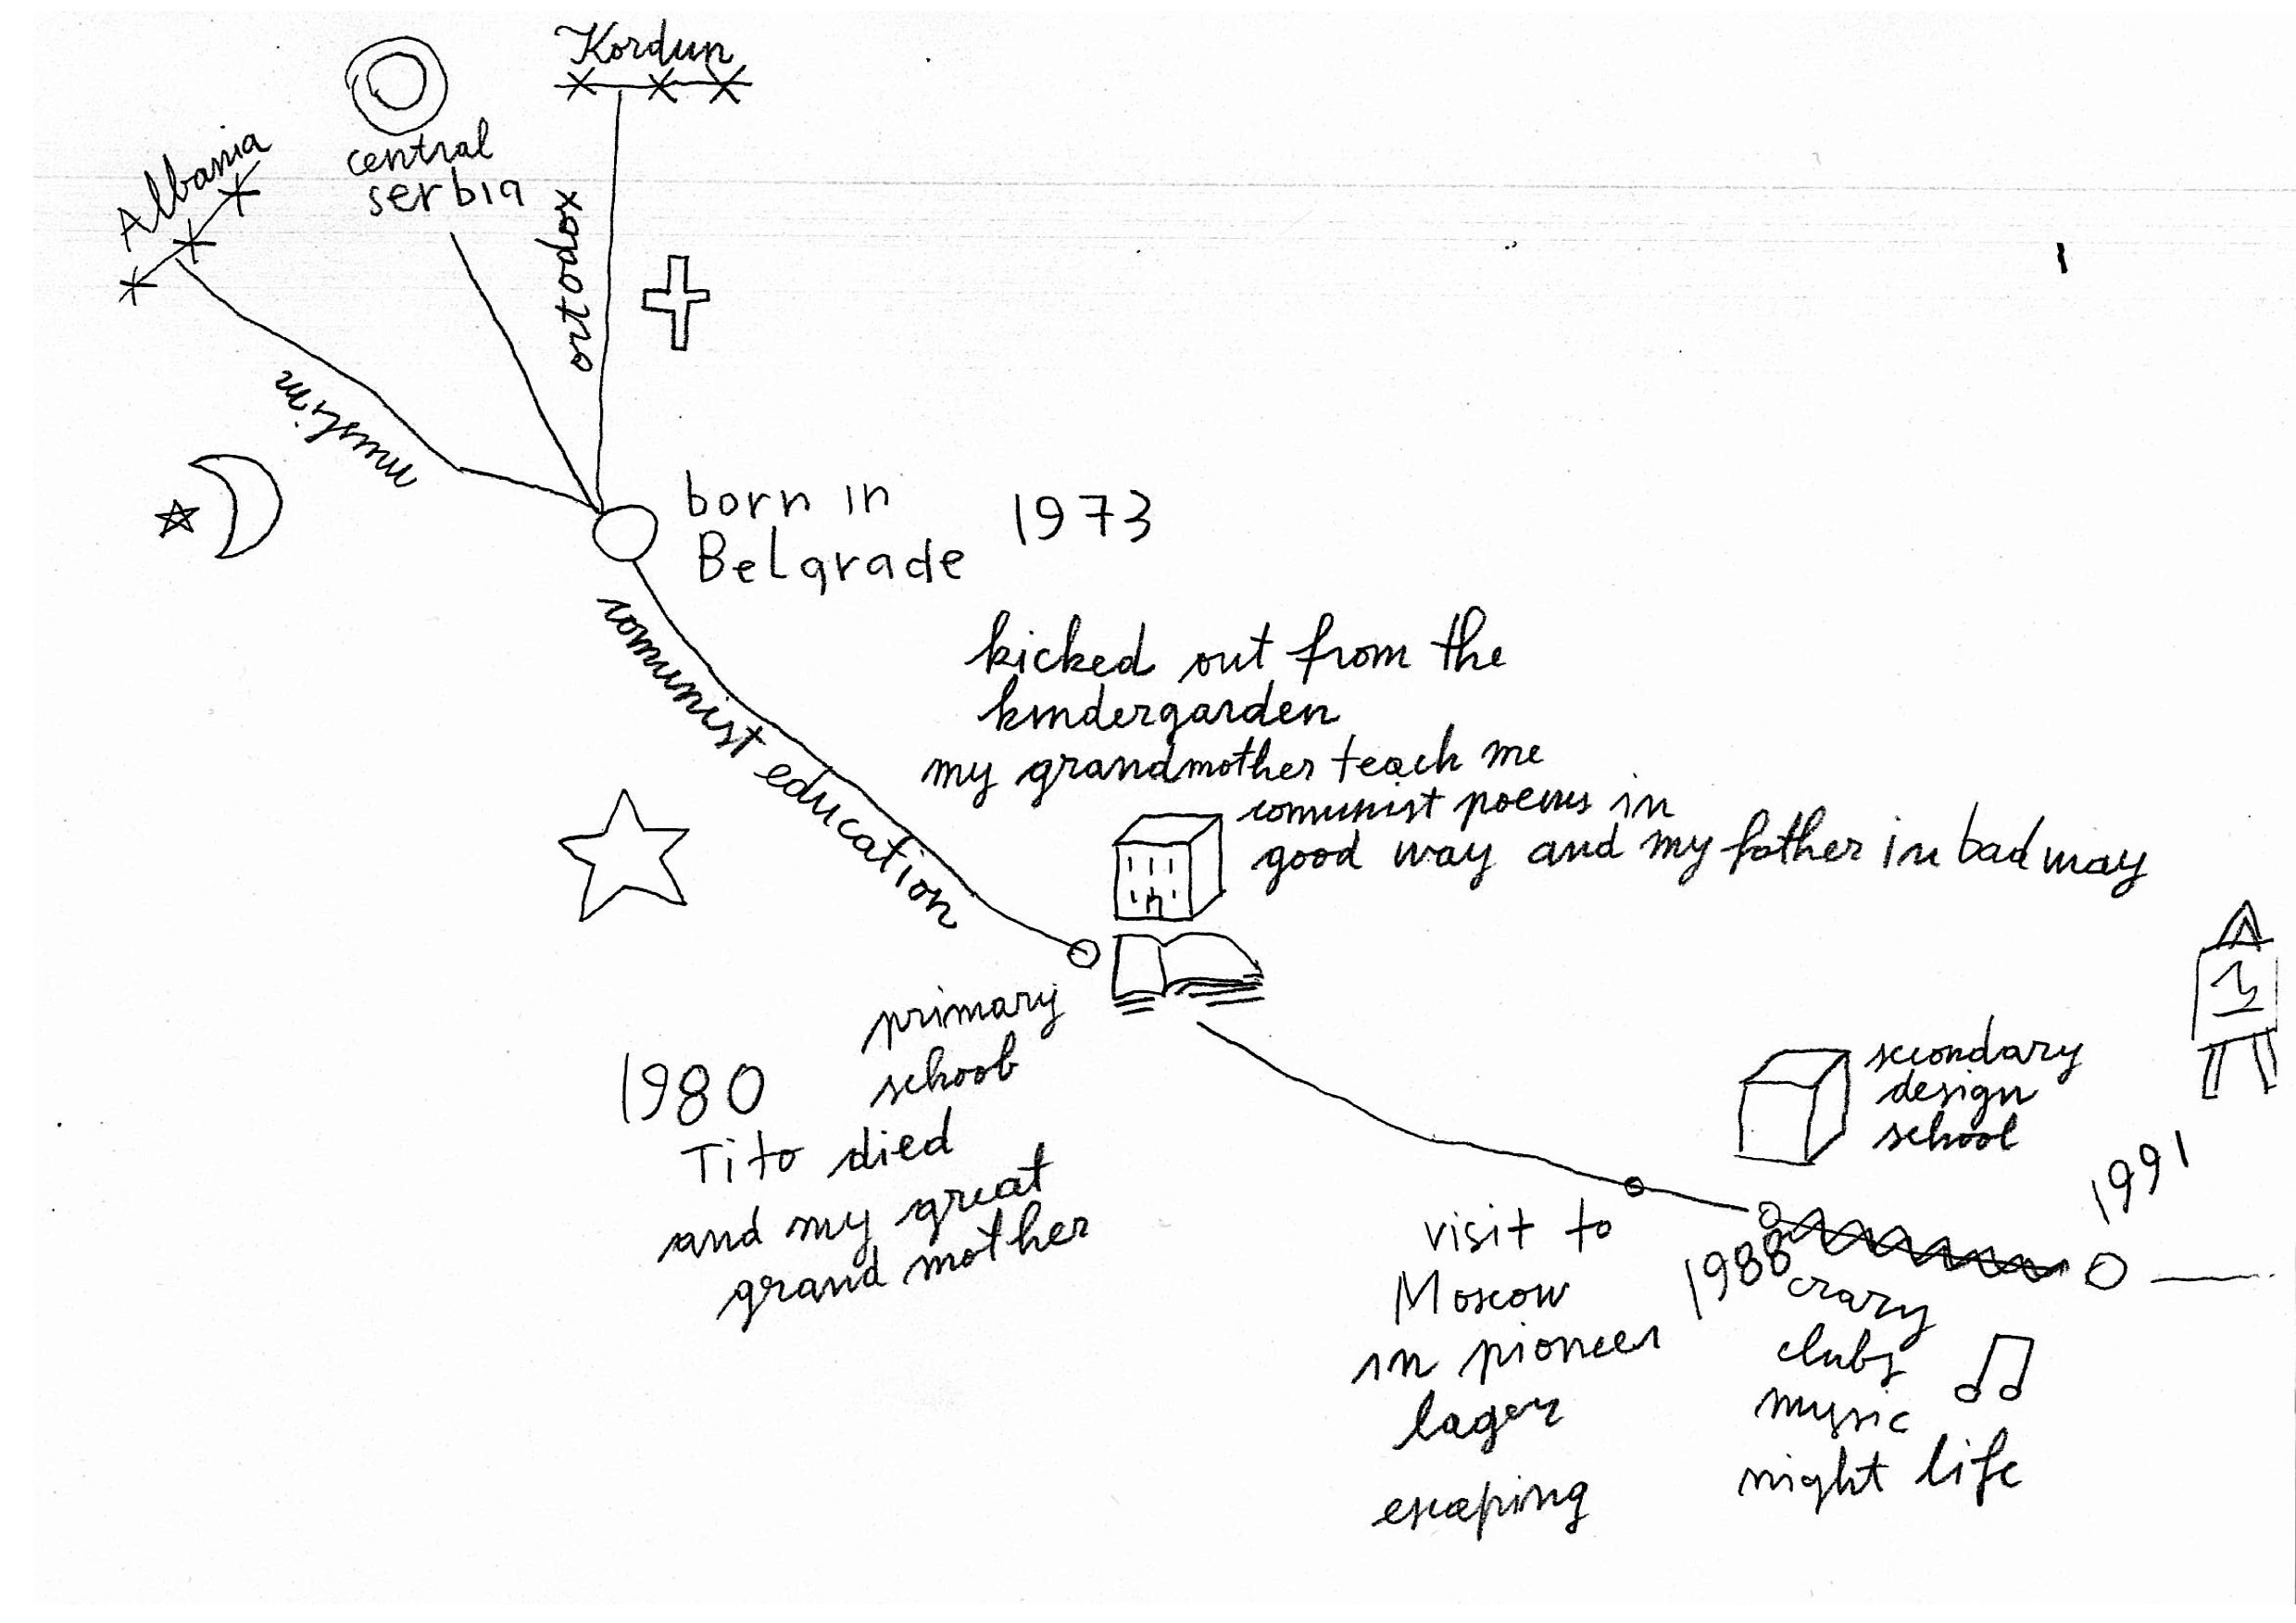 Kordun
central
serbia
Albania
ortodox
muslim
born in
Belgrade
1973
comunist education
kicked out from the
kindergarden
my grandmother teach me
comunist poems in
good way and my father in bad way
primary
school
1980
Tito died
and my great
grand mother
secondary
design
school
1991
visit to
Moscow
in pioneer
lager
escaping
1988
crazy
clubs
music
night life